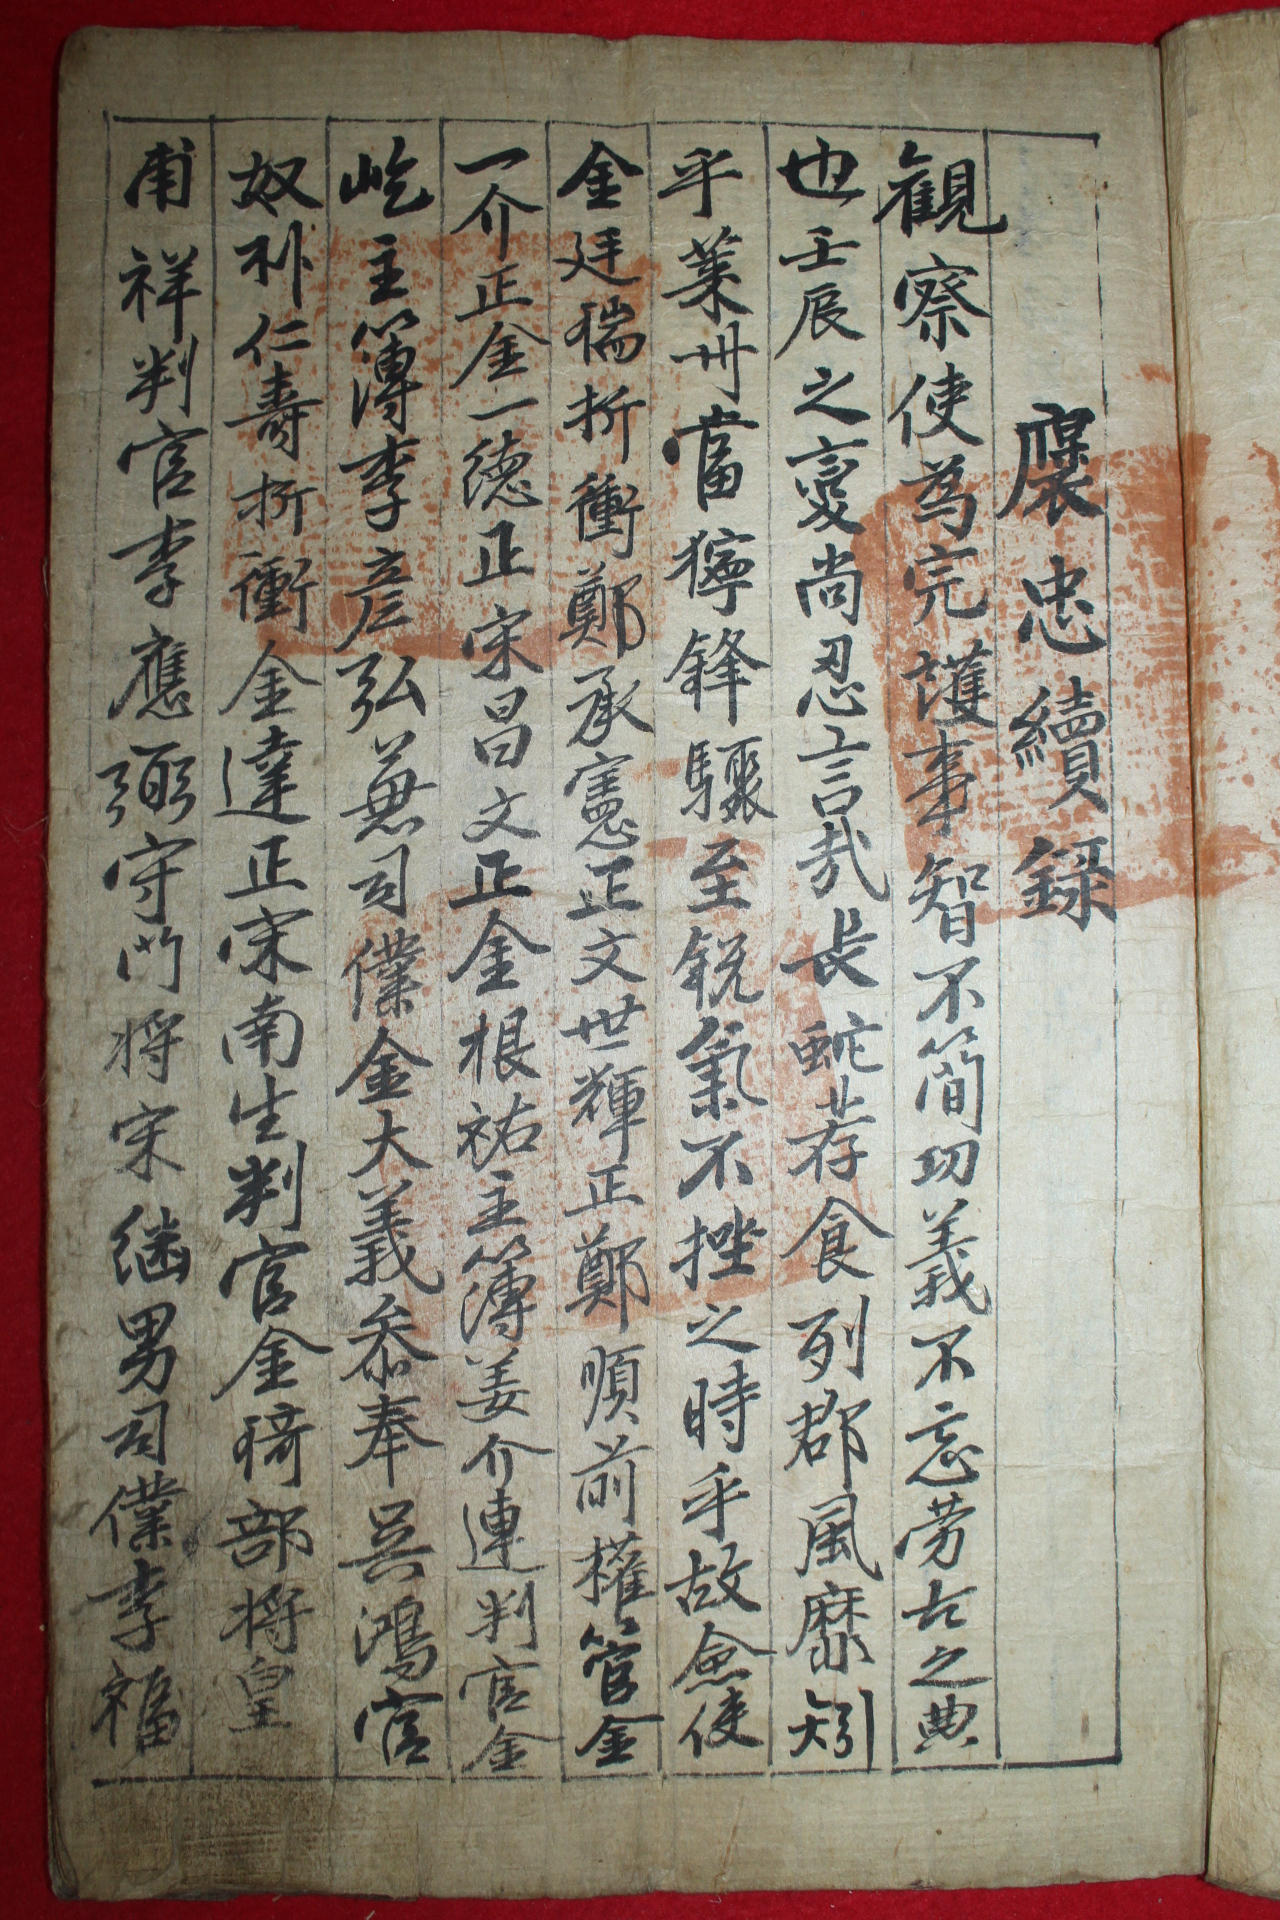 褒忠續録
觀察使為完護事智不簡功義不忘勞古之典
也壬辰之變尚忍言哉長蛇荐食列郡風靡矧
乎萊州當獰鋒驟至銳氣不挫之時乎故僉使
金廷瑞折衝鄭承憲正文世輝正鄭順前權管金
一介正金一德正宋昌文正金根祐主簿姜介連判官金
屹主簿李彥弘兼司僕金大義叅奉吳鴻官
奴朴仁壽折衝金達正宋南生判官金猗部將皇
甫祥判官李應弼守門將宋継男司僕李福